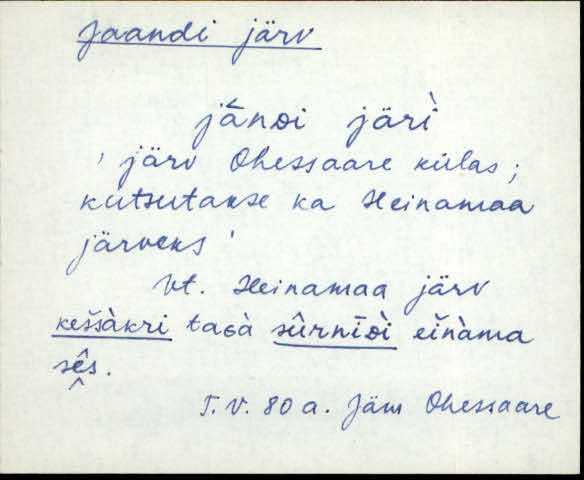 Jaandi järv
jānᴅi järì
' järv Ohessaare külas;
kutsutakse ka Heinamaa
järveks '
vt. Heinamaa järv
keššàkri taɢà sûrnīᴅi eǐnàma
sê̬s.
T.V. 80 a. Jäm Ohessaare